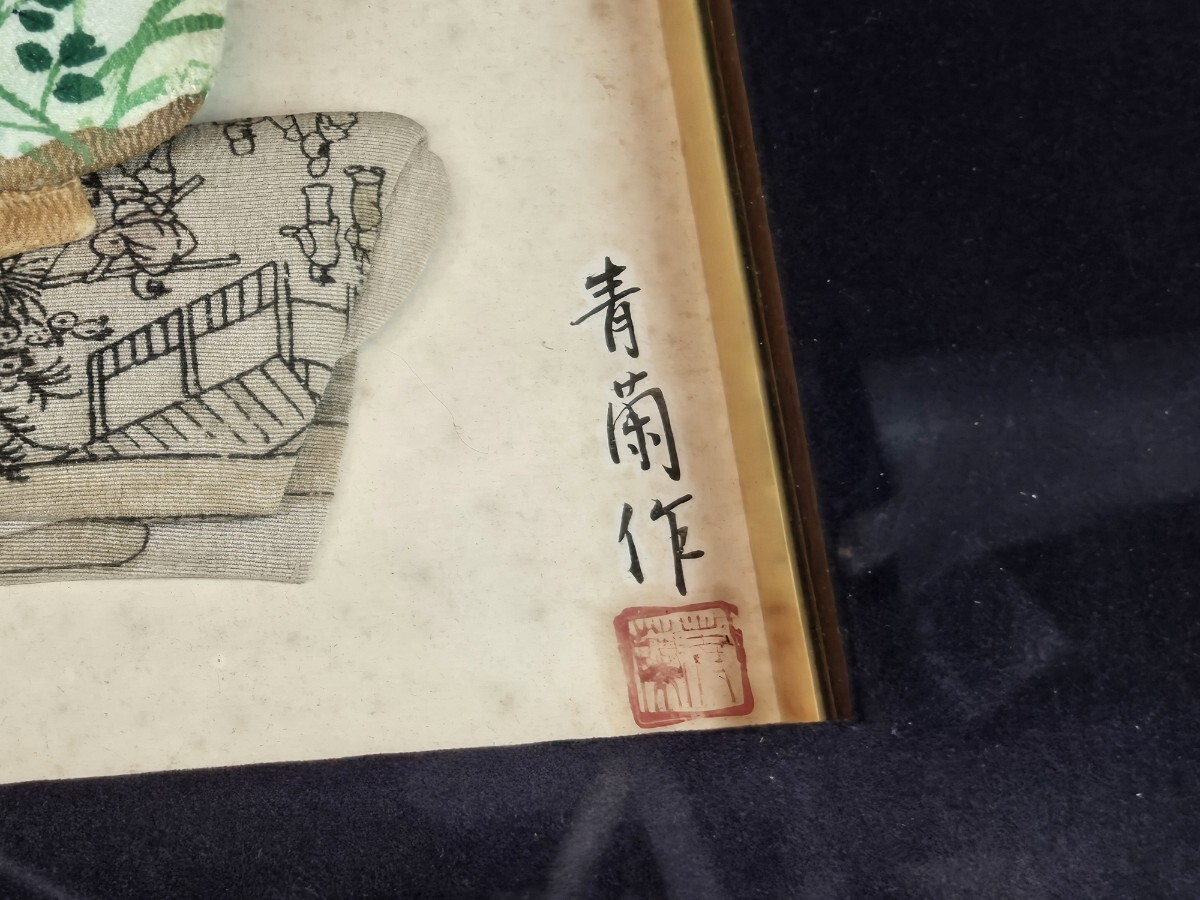 青蘭作